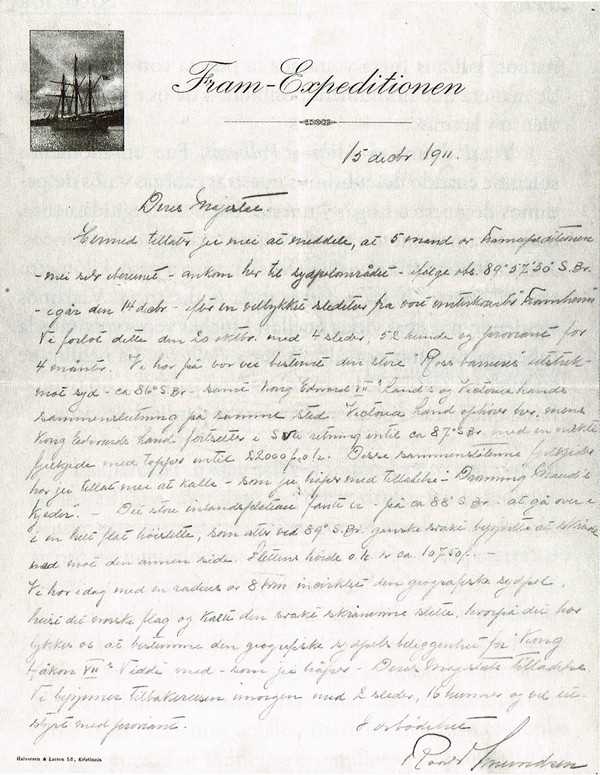 Fram-Expeditionen
15 decbr 1911.
Deres Majestæt
Hermed tillater jeg mei at meddele, at 5 mand av Framexpeditionen
- mei selv iberegnet - ankom her til sydpolområdet - ifølge obs. 89° 57' 30" S.Br.
- igår den 14 dcbr - efter en vellykket sledetur fra vort vinterkvarter "Framheim".
Vi forlot dette den 20 oktbr. med 4 sleder, 52 hunde og proviant for
4 måneder. Vi har på vor vei bestemt den store "Ross barriere's" utstrækn.
mot syd - ca 86° S.Br. - samt Kong Edward VII Land's og Victoria Lands
sammenslutning på samme sted. Victoria Land ophører her, mens
Kong Edwards Land fortsetter i retning indtil ca 87° S.Br. med en mektig
fjeldkjede med toppe indtil 22000 f.o.h. Disse sammenstøtende fjeldkjeder
har jeg tillatt mei at kalle - som jeg håper med tilladelse - "Dronning Maud's
Kjeder". - Det store indlandsplateau fandt vi - på ca 88° S.Br. - at gå over i
en helt flat høislette, som atter ved 89° S.Br. ganske svakt begyndte at skråne
ned mot den annen side. Slettens høide o.h. er ca 10750 f. -
Vi har idag med en radius av 8 km incirklet den geografiske sydpol,
heist det norske flag og kalt den svakt skrånende slette, hvorpå det har
lykkes os at bestemme den geografiske sydpols beliggenhet for "Kong
Håkon VII's Vidde" med - som jeg håper - Deres Majestæts tilladelse.
Vi begynner tilbakereisen imorgen med 2 sleder, 16 hunner og vel ut-
styrt med proviant.
Ærbødigst
Roald Amundsen
Halvorsen & Larsen Ld., Kristiania